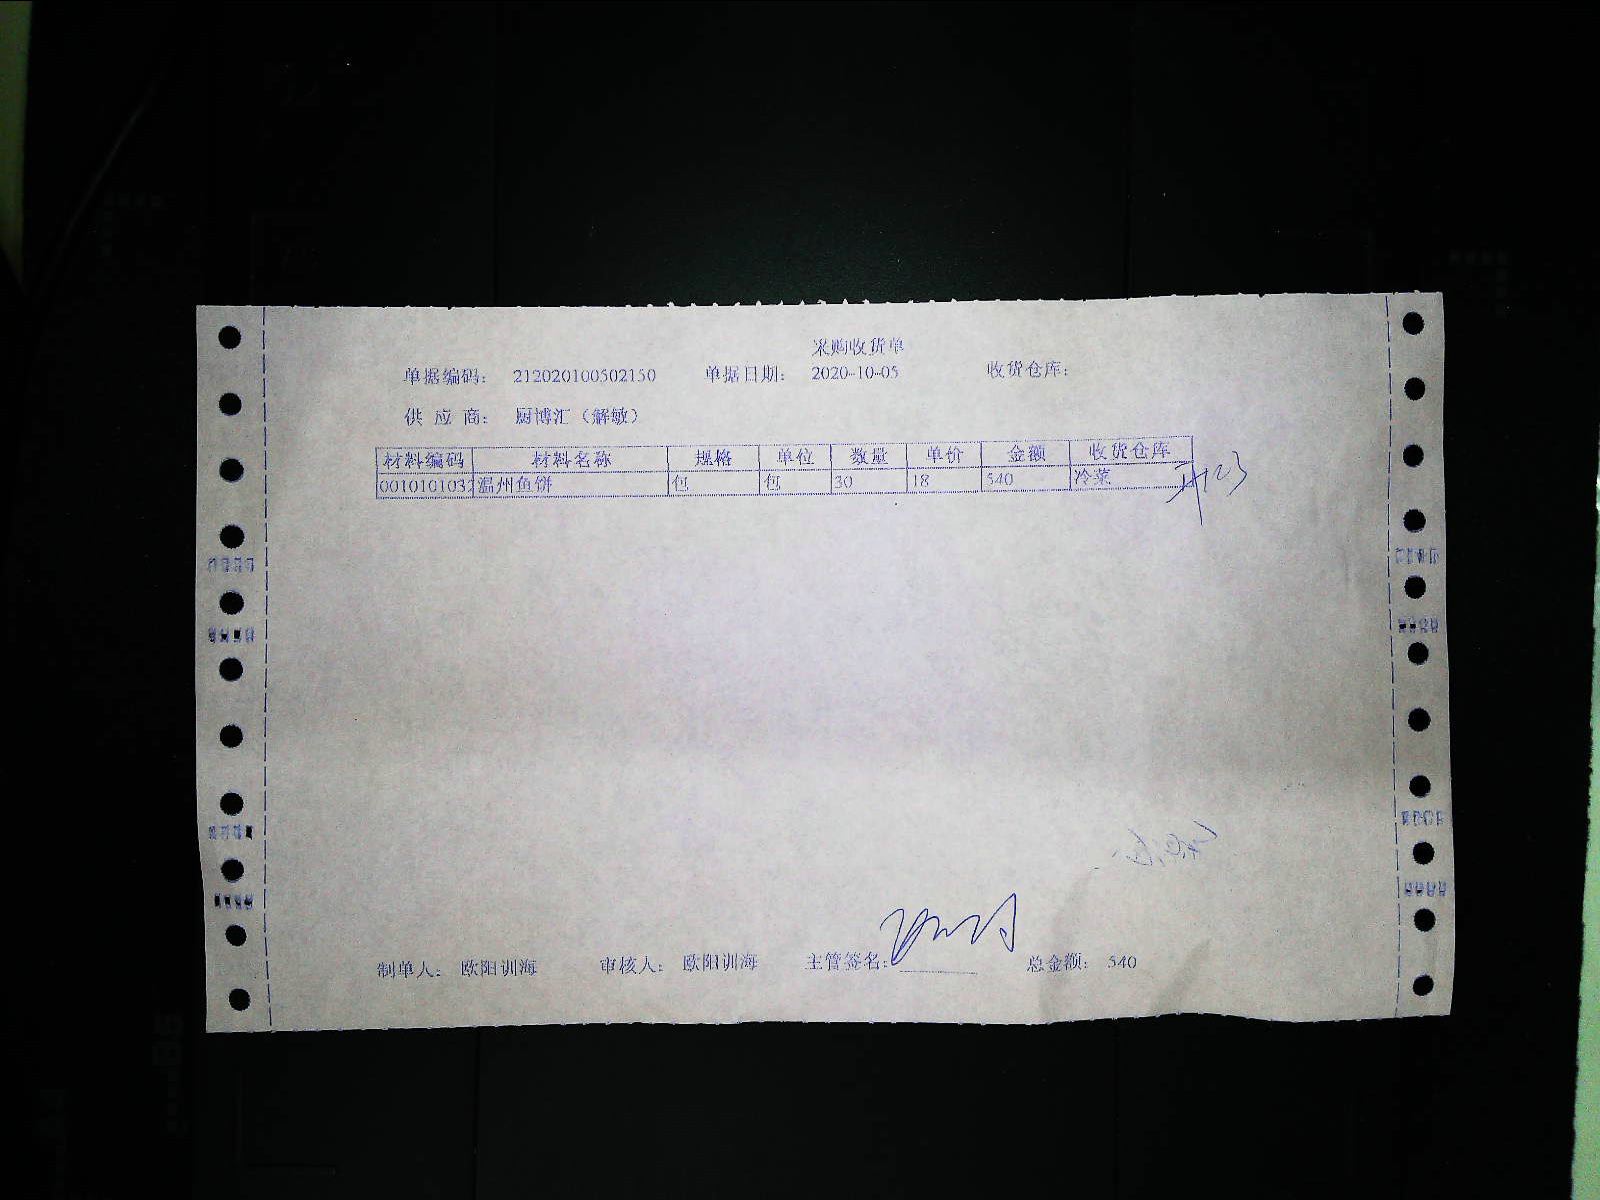 采购收货单
单据编码: 212020100502150 单据日期: 2020-10-05 收货仓库:
供 应 商: 厨博汇（解敏）
材料编码 材料名称 规格 单位 数量 单价 金额 收货仓库
0010101032 温州鱼饼 包 包 30 18 540 冷菜
制单人: 欧阳训海 审核人: 欧阳训海 主管签名: 总金额: 540